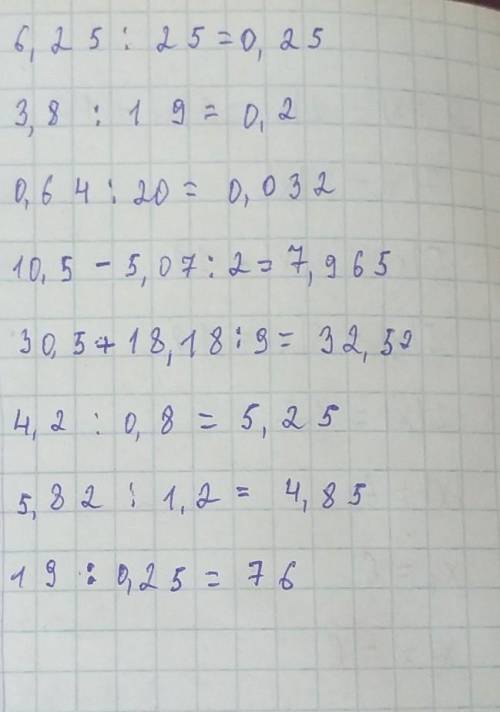 6,25 : 25 = 0,25
3,8 : 19 = 0,2
0,64 : 20 = 0,032
10,5 - 5,07 : 2 = 7,965
30,5 + 18,18 : 9 = 32,52
4,2 : 0,8 = 5,25
5,82 : 1,2 = 4,85
19 : 0,25 = 76